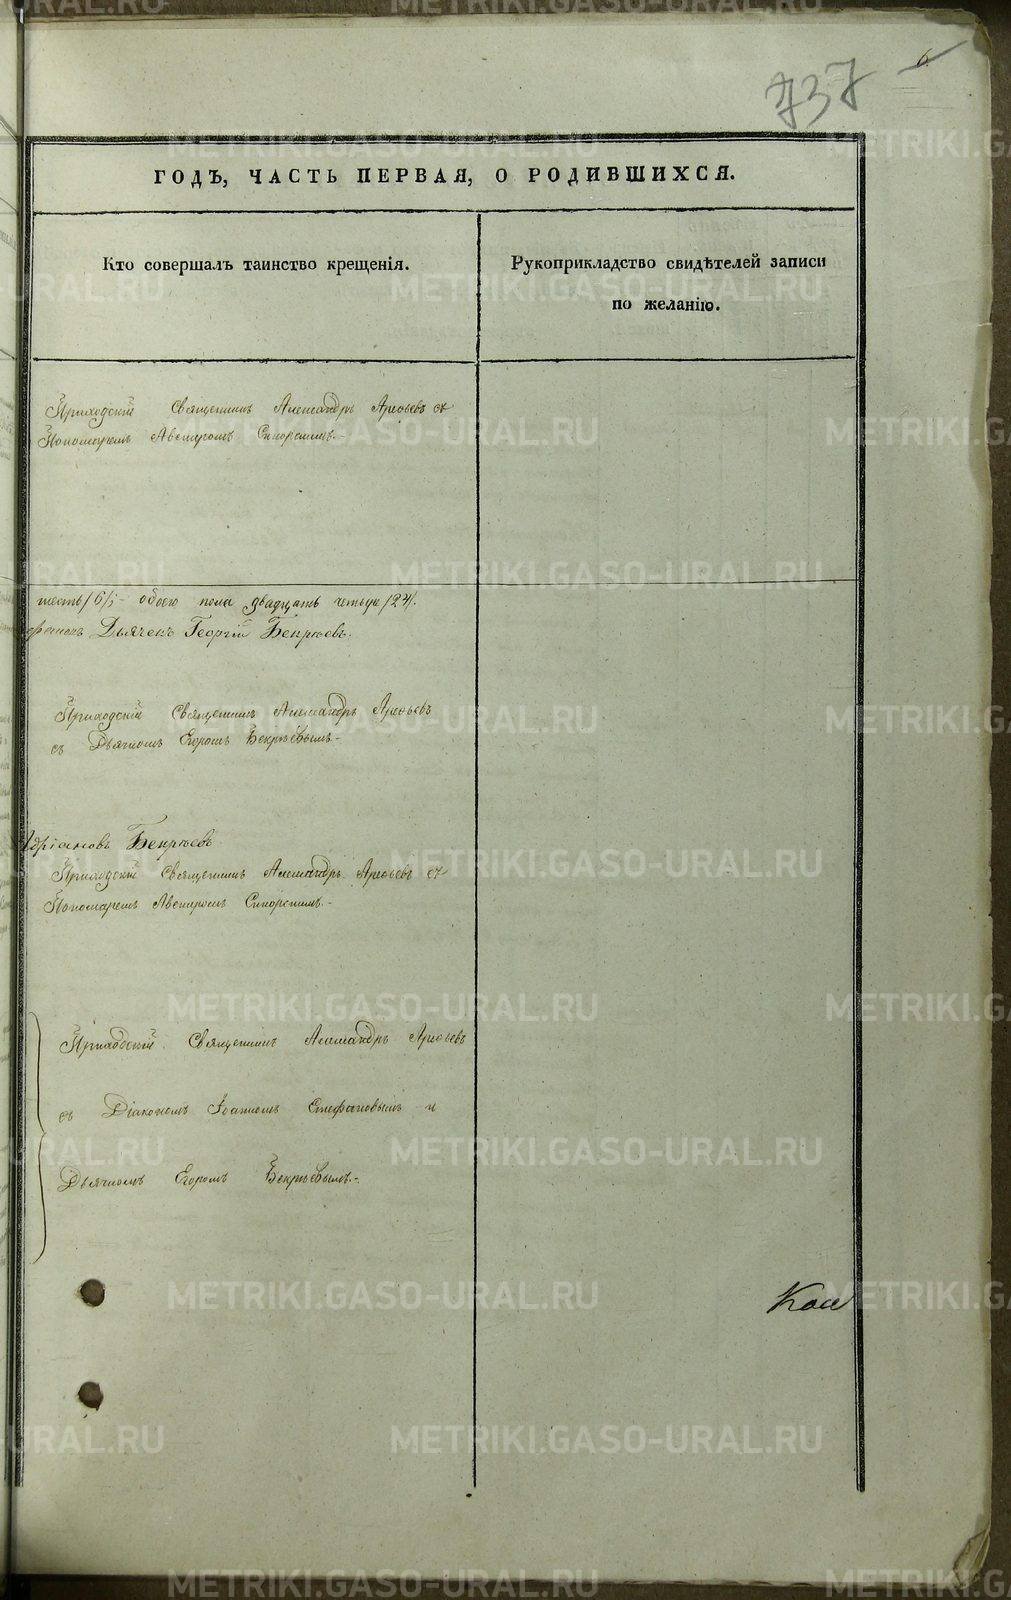 6
737
ГОДЪ, ЧАСТЬ ПЕРВАЯ, О РОДИВШИХСЯ.
Кто совершалъ таинство крещенія.
Рукоприкладство свидѣтелей записи
по желанію.
Приходскій Священникъ Александръ Арефьевъ съ
Пономаремъ Авениромъ Сикорскимъ.-
шесть /6/- обоего пола двадцать четыре /24/.
Дьячекъ Георгій Бекрѣевъ.
Приходскій Священникъ Александръ Арефьевъ
съ Дьячкомъ Егоромъ Бекрѣевымъ-
Бекрѣевъ
Приходскій Священникъ Александръ Арефьевъ съ
Пономаремъ Авениромъ Сикорскимъ.-
Приходскій Священникъ Александръ Арефьевъ
съ Діакономъ Іоанномъ Стефановымъ и
Дьячкомъ Егоромъ Бекрѣевымъ.-
METRIKI.GASO-URAL.RU